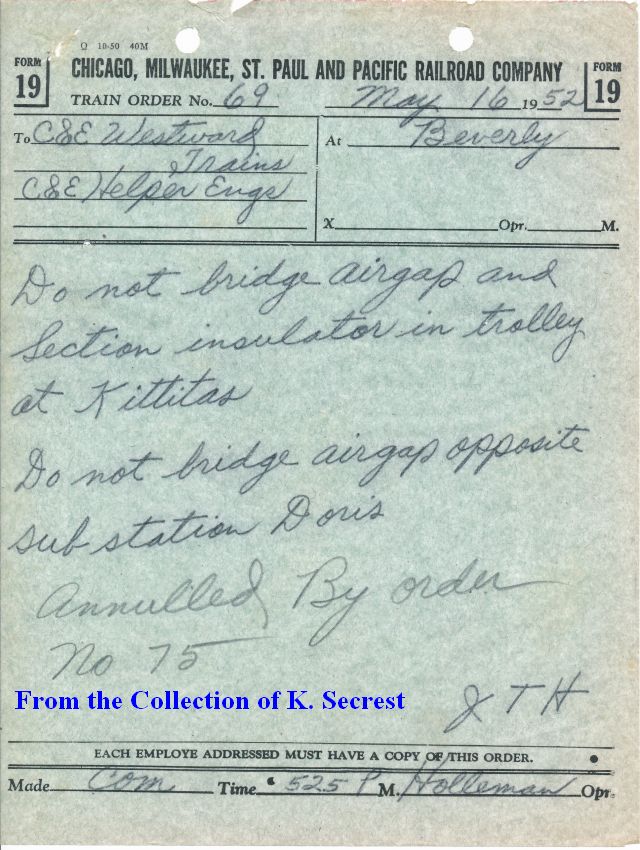 Q 10-50 40M
FORM 19 CHICAGO, MILWAUKEE, ST. PAUL AND PACIFIC RAILROAD COMPANY FORM 19
TRAIN ORDER No. 69 May 16 1952
To C&E Westward At Beverly
Trains
C&E Helper Engs
X Opr. M.
Do not bridge airgap and
Section insulator in trolley
at Kittitas
Do not bridge airgap opposite
sub station Doris
Annulled By order
No 75
From the Collection of K. Secrest
J T H
EACH EMPLOYE ADDRESSED MUST HAVE A COPY OF THIS ORDER.
Made Com Time 525 P M. Holleman Opr.